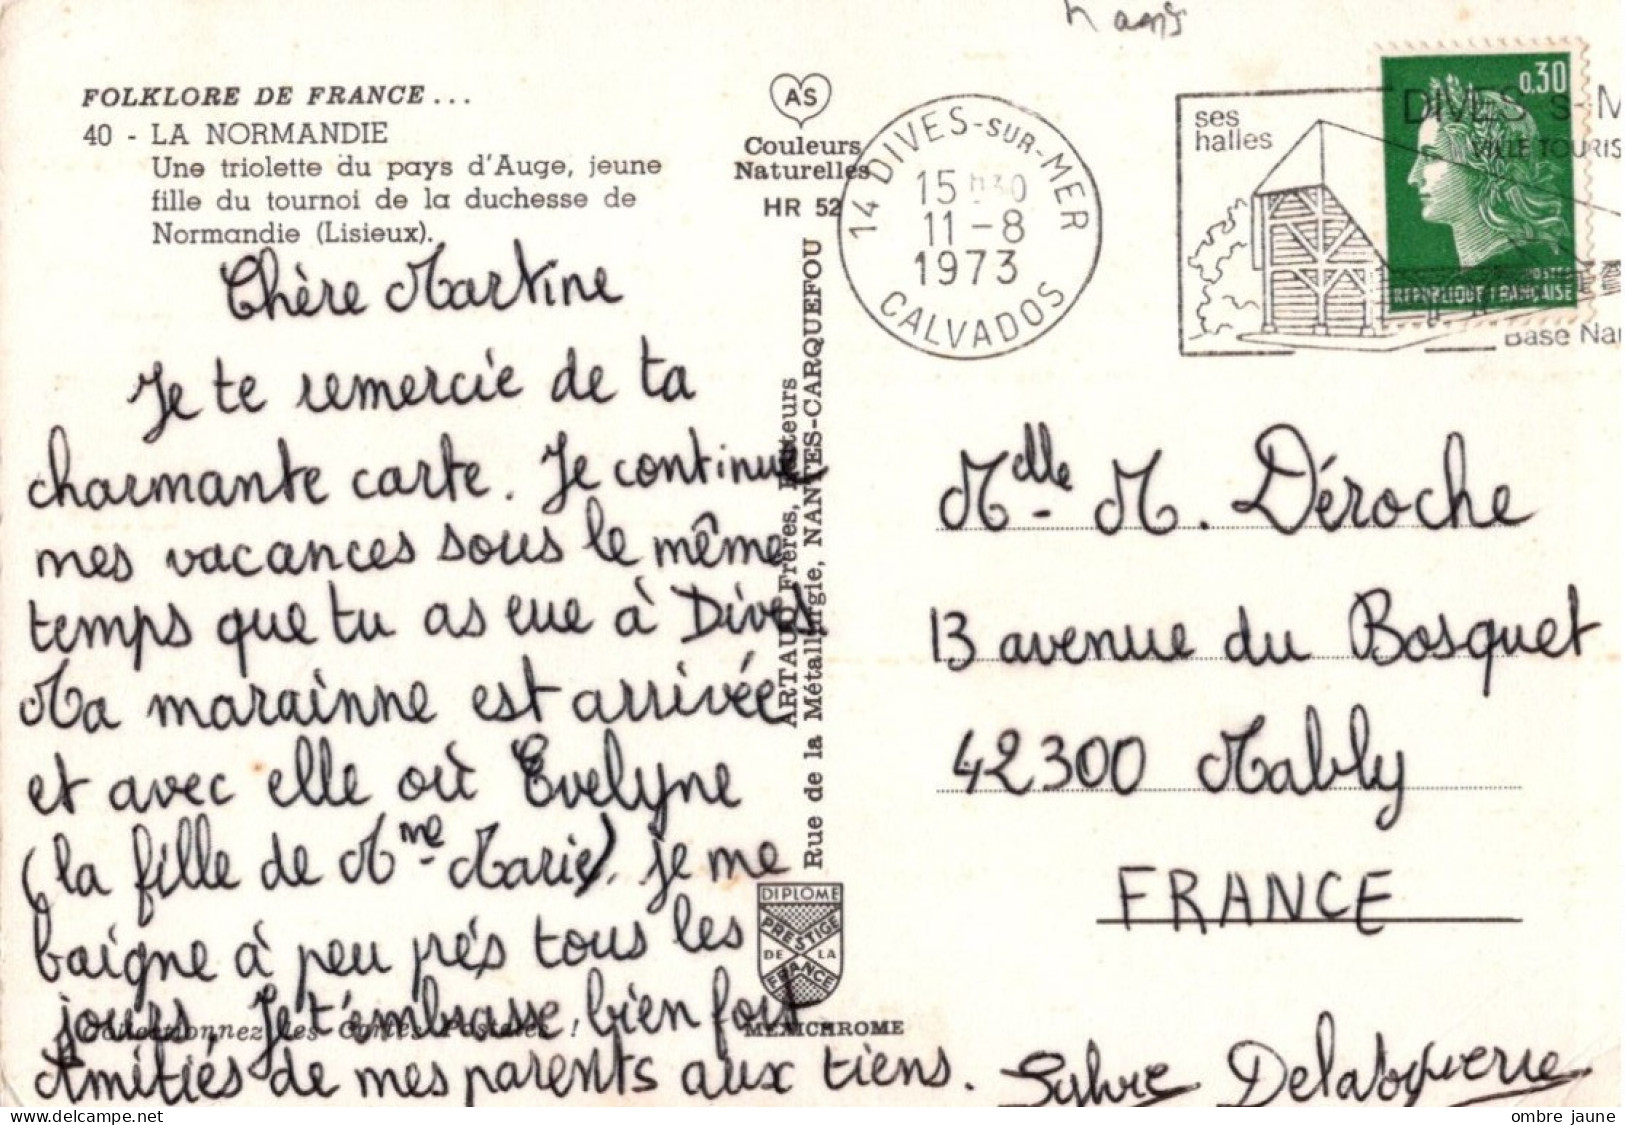 FOLKLORE DE FRANCE...
40 - LA NORMANDIE
Une triolette du pays d'Auge, jeune
fille du tournoi de la duchesse de
Normandie (Lisieux).
Chère Martine
Je te remercie de ta
charmante carte. Je continue
mes vacances sous le même
temps que tu as eue à Dives.
Ma marainne est arrivée
et avec elle où Evelyne
(la fille de Mme Marie). je me
baigne à peu prés tous les
jours. Je t'embrasse bien fort
Amitiés de mes parents aux tiens.
Sylvie
Collectionnez les Cartes Postales !
AS
Couleurs
Naturelles
HR 52
ARTAUD Frères, Editeurs
Rue de la Métallurgie, NANTES-CARQUEFOU
DIPLOME
PRESTIGE
DE LA
FRANCE
MEXICHROME
14 DIVES-SUR-MER
15 h30
11-8
1973
CALVADOS
ses
halles
DIVES S-M
VILLE TOURIS
Base Nau
0,30
POSTES
REPUBLIQUE FRANÇAISE
Mdlle M. Déroche
13 avenue du Bosquet
42300 Mably
FRANCE
delcampe.net
ombre jaune